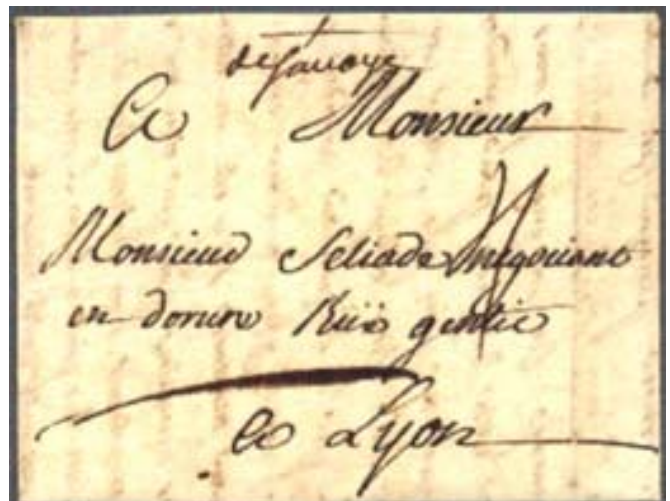 de Savoye
A Monsieur
Monsieur Seliade negociant
en dorure Rüe gentie
A Lyon